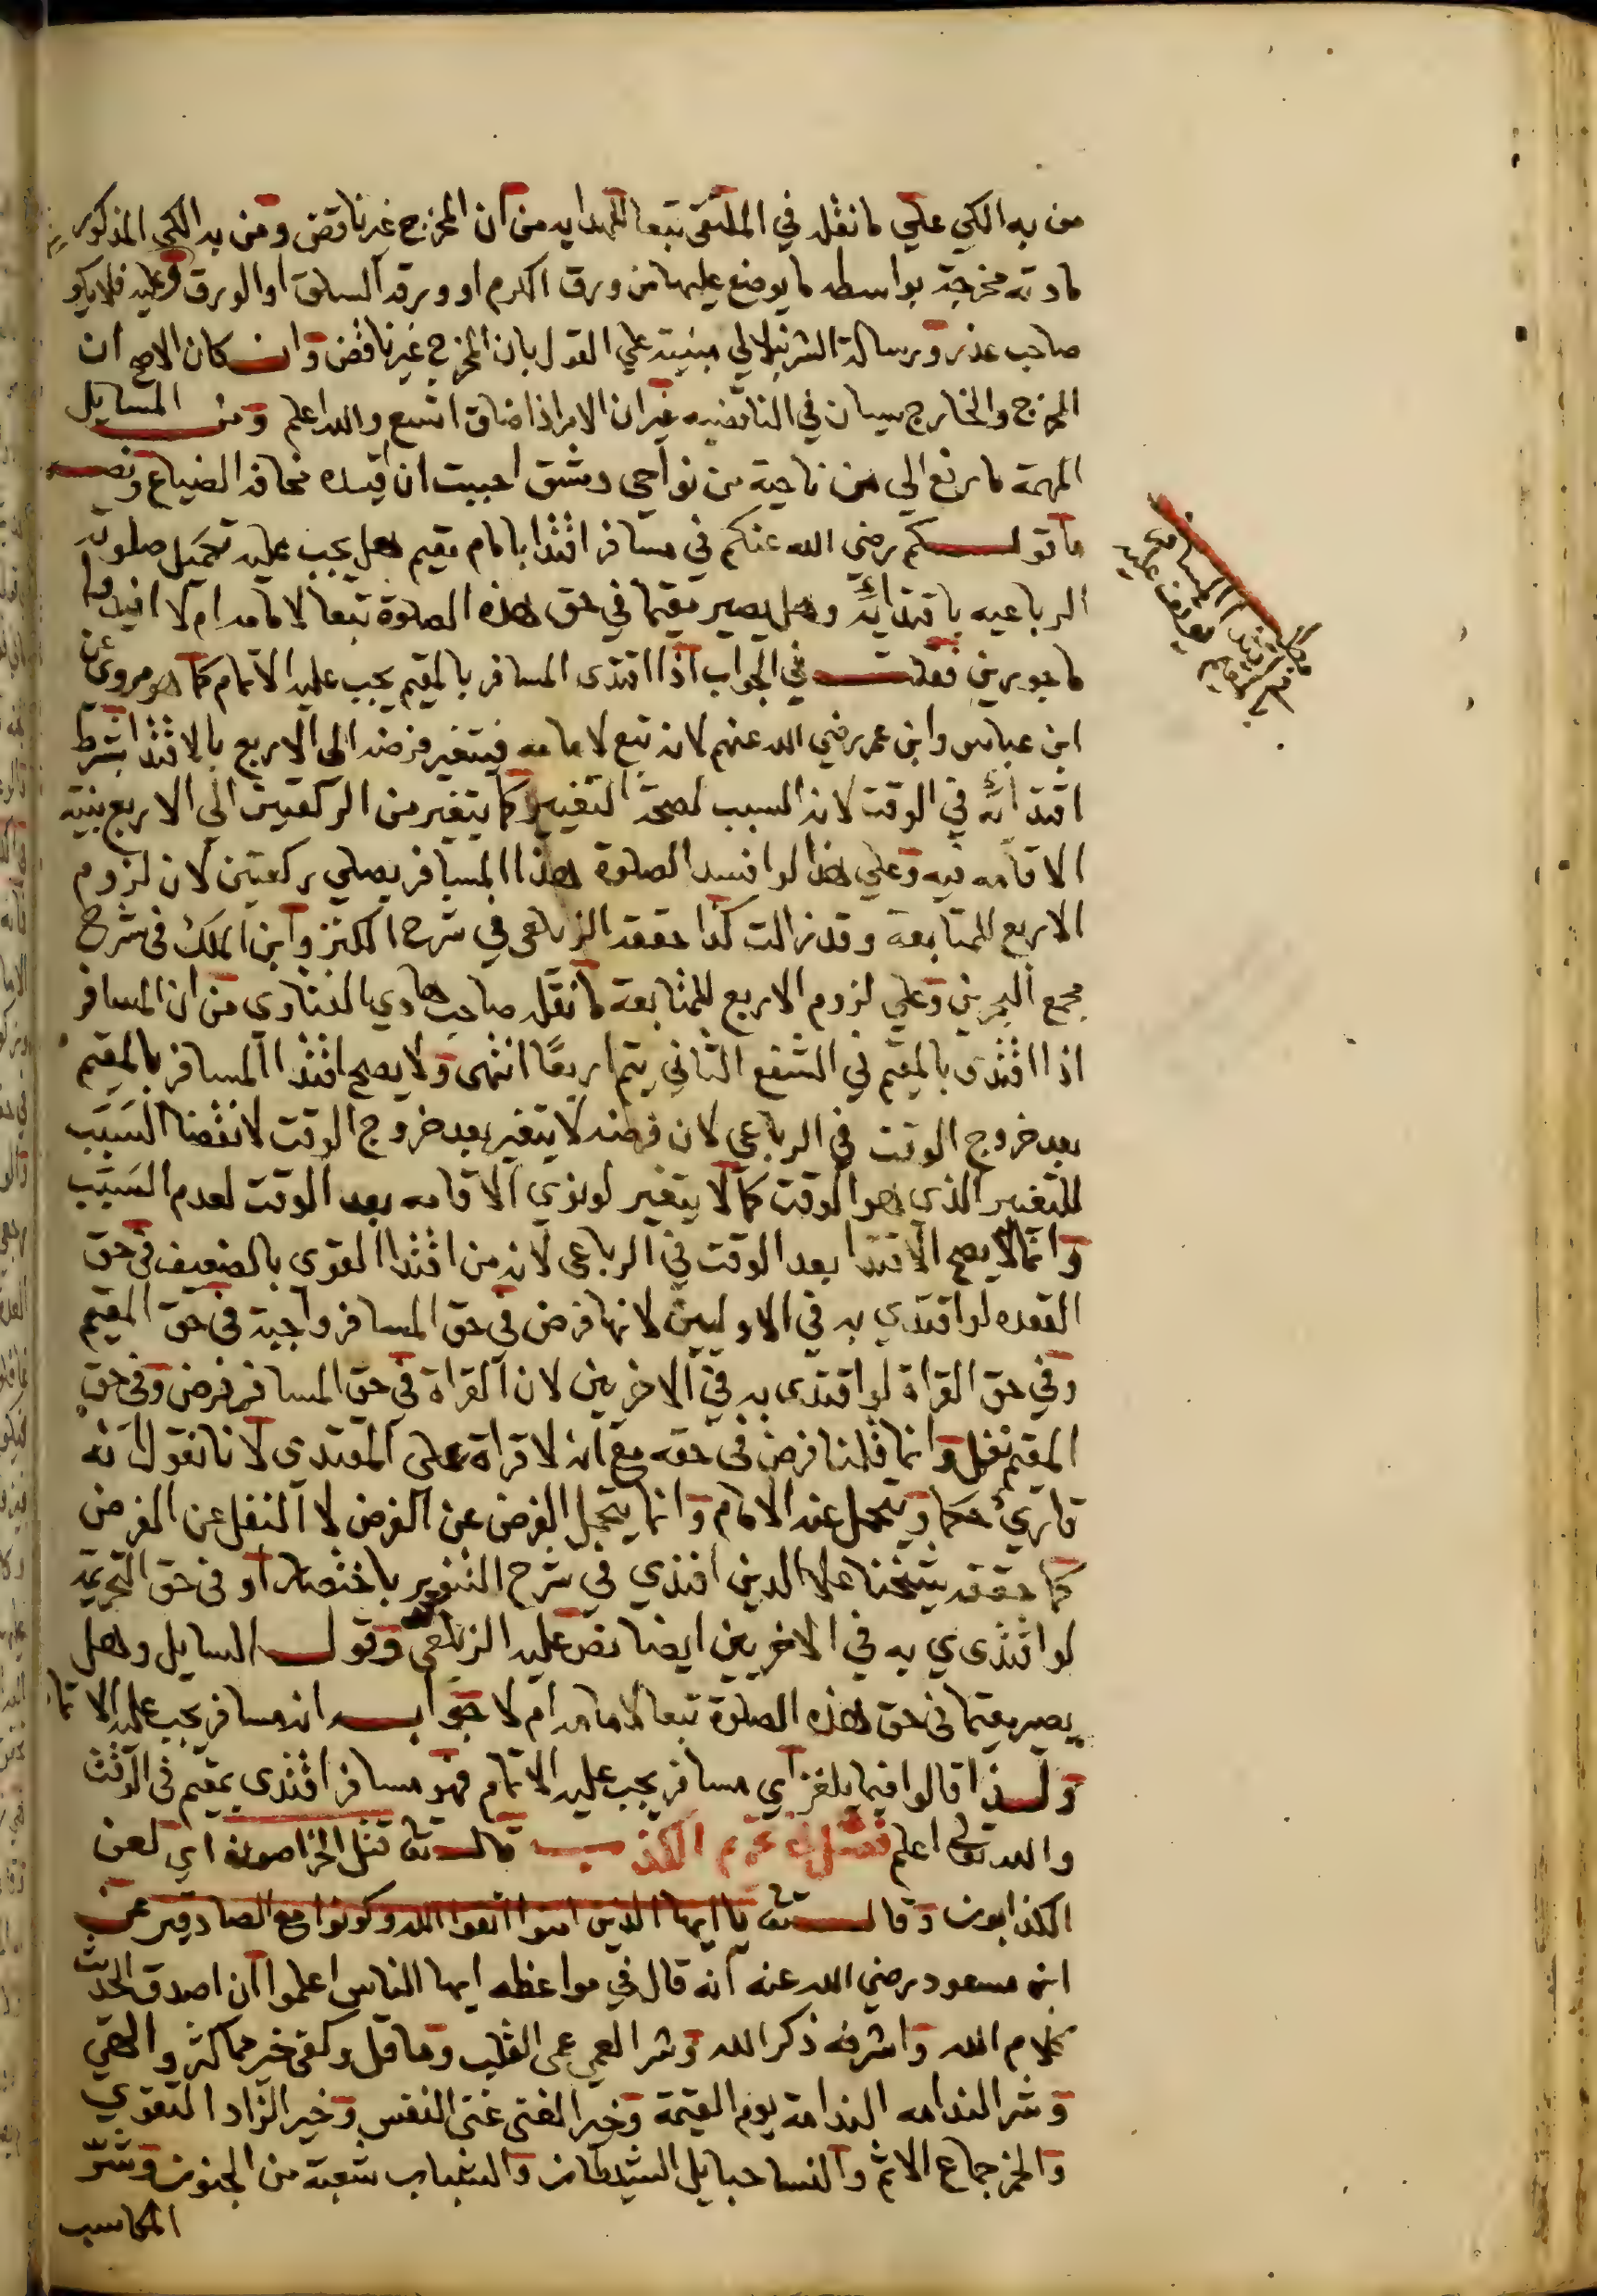 من به الكي علي ما نقله في الملتقى تبعا للهدايه من ان المخرج غير ناقض ومن به الكي المذكور
مادته مخرجة بواسطه ما يوضع عليها من ورق الكرم او ورق السلق او الورق وعليه فلا يكو
صاحب عذر ورسالة الشرنبلالي مبنية علي القول بان المخرج غير ناقض وان كان الاصح ان
المخرج والخارج سيان في الناقضيه غير ان الامر اذا ضاق اتسع والله اعلم ومن المسايل
المهمة ما رفع الي من ناحية من نواحي دمشق احببت ان اقيده مخافة الضياع ونصه
ما قولكم رضي الله عنكم في مسافر اقتدا بامام مقيم هل يجب عليه تكميل صلوته
الرباعيه باقتدائه وهل يصير مقيما في حق هذه الصلوة تبعا لامامه ام لا افيدوا
ماجورين فقلت في الجواب اذا اقتدى المسافر بالمقيم يجب عليه الاتمام كما هو مروي عن
ابن عباس وابن عمر رضي الله عنهم لانه تبع لامامه فيتغير فرضه الى الاربع بالاقتدا بشرط
اقتدائه في الوقت لانه السبب لصحة التغيير كما يتغير من الركعتين الي الاربع بنية
الاقامه فيه وعلي هذا لو افسد الصلوة هذا المسافر يصلي ركعتين لان لزوم
الاربع للمتابعة وقد زالت كذا حققه الزيلعي في شرح الكنز وابن الملك في شرح
مجمع البحرين وعلي لزوم الاربع للمتابعة ما نقله صاحب حاوي الفتاوى من ان المسافر
اذا اقتدى بالمقيم في الشفع الثاني يتم اربعًا انتهى ولا يصح اقتدا المسافر بالمقيم
بعد خروج الوقت في الرباعي لان فرضه لا يتغير بعد خروج الوقت لانقضا السبب
للتغيير الذي هو الوقت كما لا يتغير لو نوي الاقامه بعد الوقت لعدم السبب
وانما لا يصح الاقتدا بعد الوقت في الرباعي لانه من اقتدا القوى بالضعيف في حق
القعده لو اقتدي به في الاوليين لانها فرض في حق المسافر واجبة في حق المقيم
وفي حق القراة لو اقتدى به في الاخريين لان القراة في حق المسافر فرض وفي حق
المقيم نفل وانما قلنا فرض في حقه مع انه لا قراة على المقتدى لانا نقول انه
قاريء حكما ويتحمل عنه الامام وانما يتحمل الفرض عن الفرض لا النفل عن الفرض
كما حققه شيخنا علا الدين افندي في شرح التنوير باختصار او في حق التحريمة
لو اقتدى به في الاخريين ايضا نص عليه الزيلعي وقول السايل وهل
يصير مقيما في حق هذه الصلوة تبعا لامامه ام لا جوابه انه مسافر يجب عليه الاتما
ولذا قالوا فيما يلغز اي مسافر يجب عليه الاتمام فهو مسافر اقتدى بمقيم في الوقت
والله تعالى اعلم فصل في تحريم الكذب قال تع قتل الخراصون اي لعن
الكذابون وقال تع يا ايها الذين امنوا اتقوا الله وكونوا مع الصادقين عن
ابن مسعود رضي الله عنه انه قال في مواعظه ايها الناس اعلموا ان اصدق الحديث
كلام الله واشرفه ذكر الله وشر العمي عمى القلب وما قل وكفى خير مما كثر والهي
وشر الندامه الندامة يوم القيمة وخير الغنى غنى النفس وخير الزاد التقوي
والخمر جماع الاثم والنسا حبايل الشيطان والشباب شعبة من الجنون وشر
المكاسب